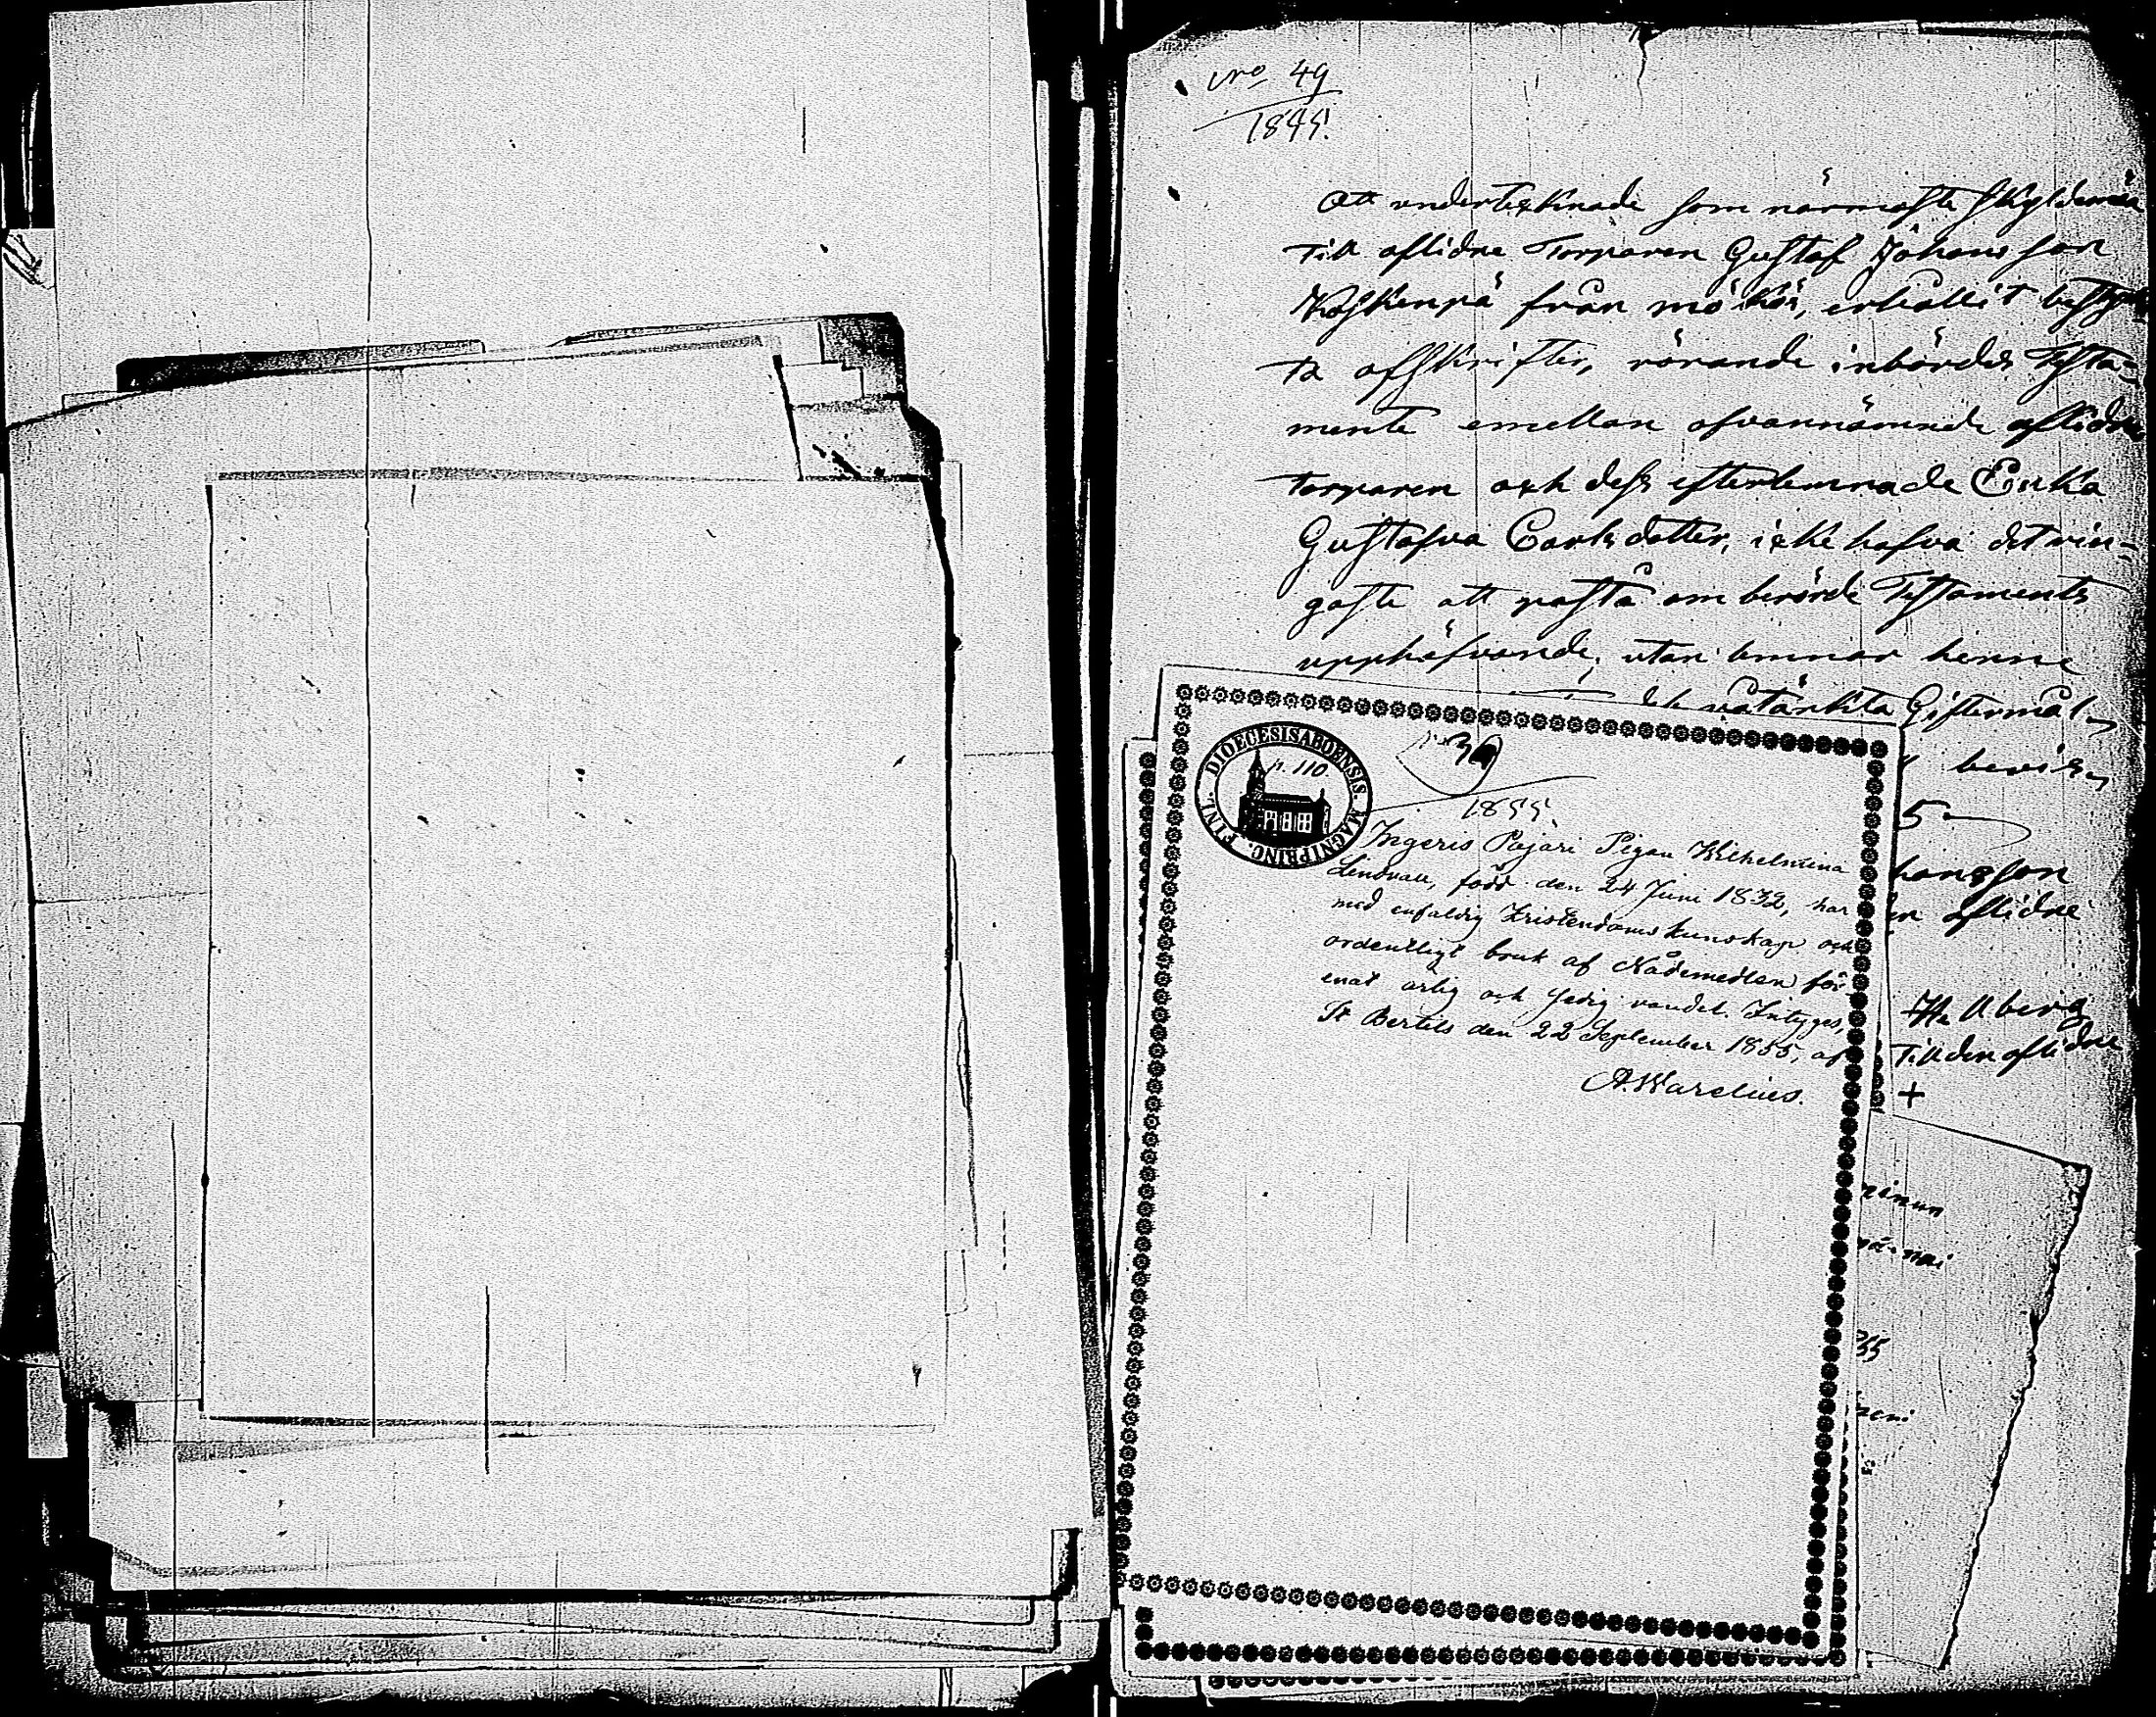 Nro 49
1845.
Att undertecknade som närmaste skyldemän
till aflidne Torparen Gustaf Johansson
Koskenpä från Mökör, erhållit bestyrk
ta afskrifter, rörande inbördes Testa-
mente emellan ofvannämnde aflidne
torparen och dess efterlemnade Enka
Gustafva Carlsdotter, icke hafva det rin-
gaste att påstå om berörde Testaments
upphäfvande, utan lemnar henne
påtänkta Giftermål
bevis
5
hansson
aflidne
Hellberg
till den aflidne
+
DIOECESIS ABOENSIS. MAGNI PRINC. FINL.
p. 110.
1855.
Ingeris Pajari Pigan Wilhelmina
Lindvall, född den 24 Juni 1832, har
med enfaldig Kristendoms kunskap och
ordentligt bruk af Nådemedlen för-
enat ärlig och sedig vandel. Intygas,
St Bertels den 22 September 1855, af
A. Warelius.
35